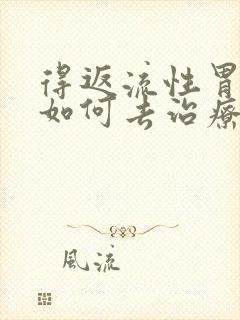 得返流性胃
如何去治療
風流